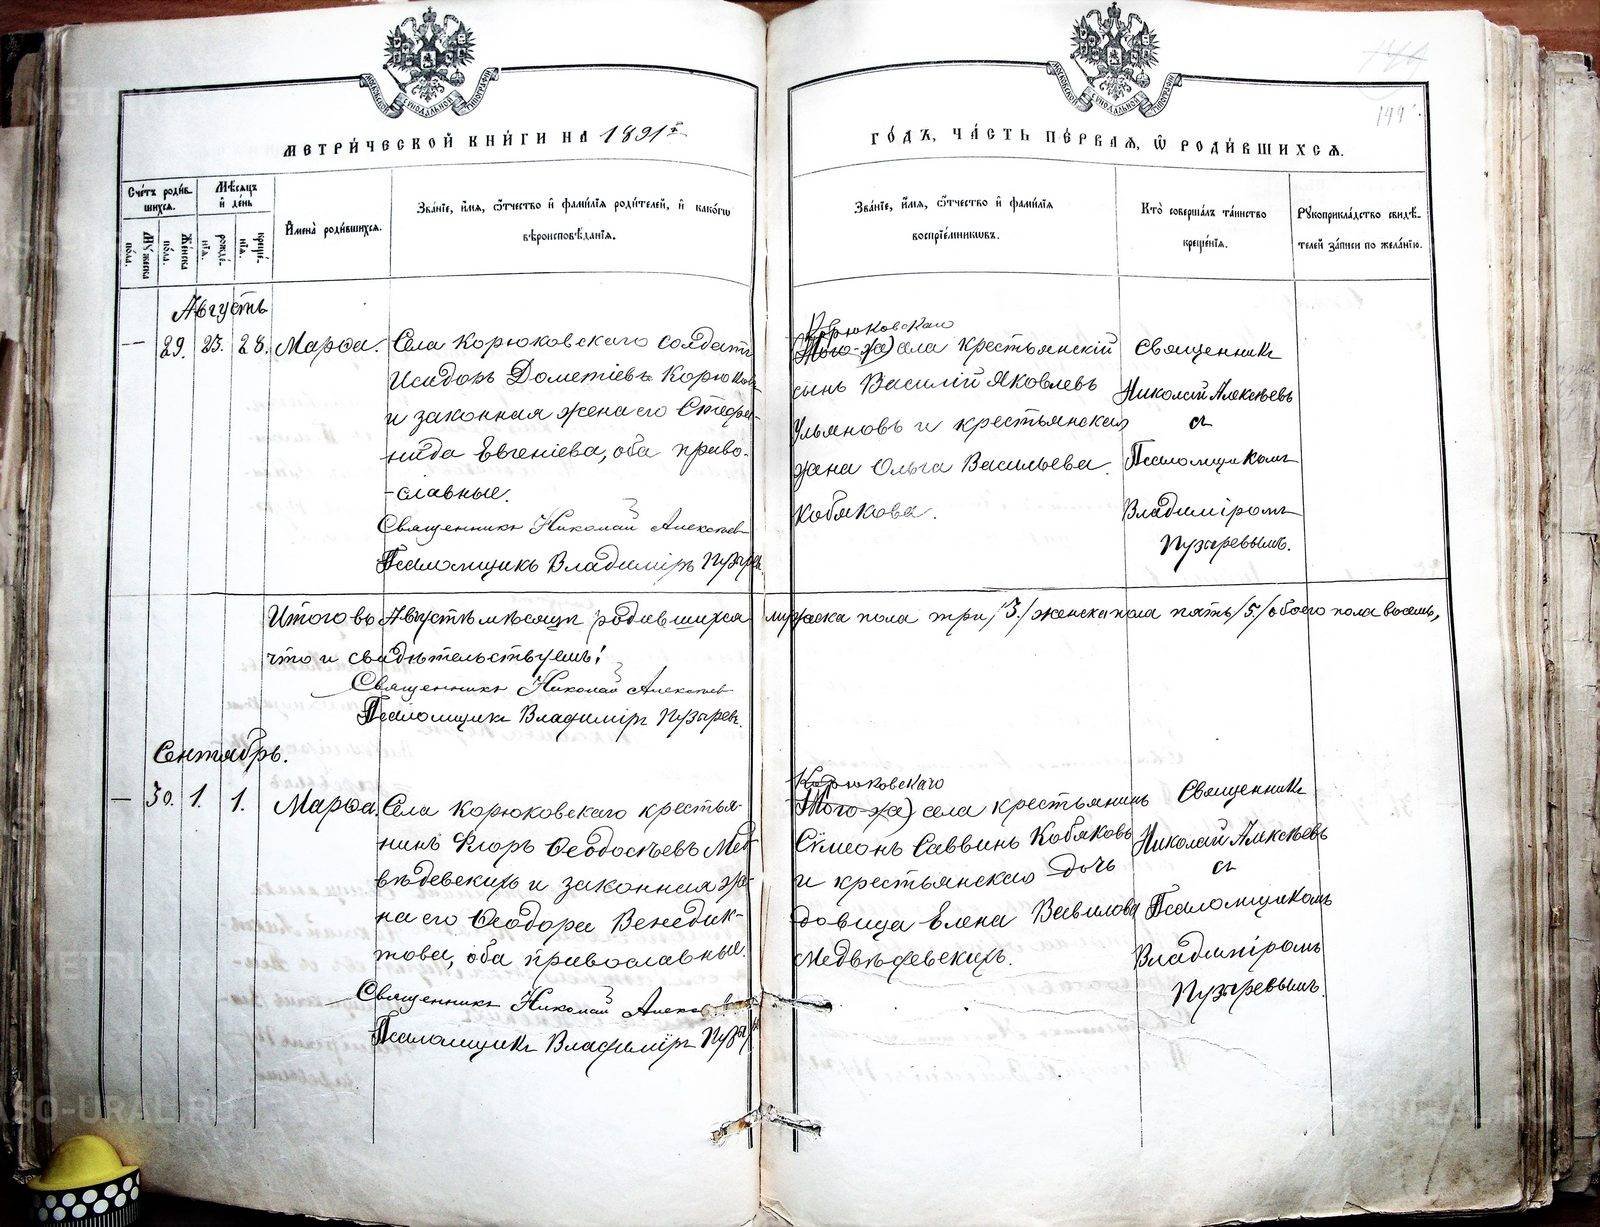 МЕТРИ́ЧЕСКОЙ КНИ́ГИ НА 1891й
ГО́ДЪ, ЧА́СТЬ ПЕ́РВАЯ, Ѽ РОДИ́ВШИХСЯ.
144
144
Сче́тъ роди́в-
шихся.
Мѣ́сяцъ
и де́нь
Му́жеска
по́ла.
Же́нска
по́ла.
рожде́-
нія.
креще́-
нія.
Имена̀ роди́вшихся.
Зва́ніе, и́мя, ѻ́тчество и фами́лія роди́телей, и како́гѡ
вѣроисповѣ́данія.
Зва́ніе, и́мя, ѻ́тчество и фами́лія
воспріе́мникѡвъ.
Кто̀ соверша́лъ та́инство
креще́нія.
Рꙋкоприкла́дство свидѣ́-
телей за́писи по жела́нію.
Августъ
— 29. 25. 28. Марѳа. Села Корюковскаго солдатъ
Исидоръ Дометіевъ Корюков
и законная жена его Стефа-
нида Евгеніева, оба право-
-славные.
Священникъ Николай Алексѣев
Псаломщикъ Владиміръ Пузырев
Корюковскаго
Того-же) села крестьянскій
сынъ Василій Яковлевъ
Ульяновъ и крестьянская
жена Ольга Васильева
Кобякова.
Священникъ
Николай Алексѣевъ
съ
Псаломщикомъ
Владиміромъ
Пузыревымъ.
Итого въ Августѣ мѣсяцѣ родившихся мужеска пола три /3./ женска пола пять /5./ обоего пола восемь,
что и свидѣтельствуемъ:
Священникъ Николай Алексѣев
Псаломщикъ Владиміръ Пузырев.
Сентябрь.
— 30. 1. 1. Марѳа. Села Корюковскаго крестья-
нинъ Флоръ Ѳеодосѣевъ Мед-
вѣдевскихъ и законная же-
на его Ѳеодора Венедик-
това, оба православные.
Священникъ Николай Алексѣев
Псаломщикъ Владиміръ Пузыр
Корюковскаго
Того-же) села крестьянинъ
Сѵмеонъ Саввинъ Кобяковъ
и крестьянская дочь
довица Елена Вавилова
Медвѣдевскихъ.
Священникъ
Николай Алексѣевъ
съ
Псаломщикомъ
Владиміромъ
Пузыревымъ.